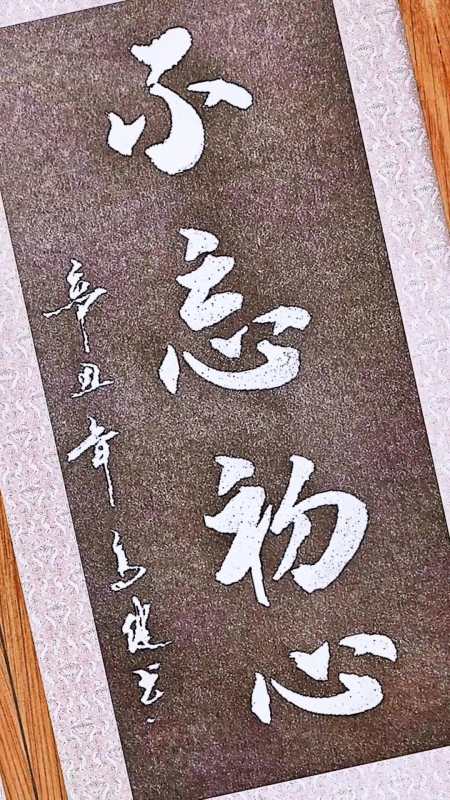 不忘初心
辛丑年